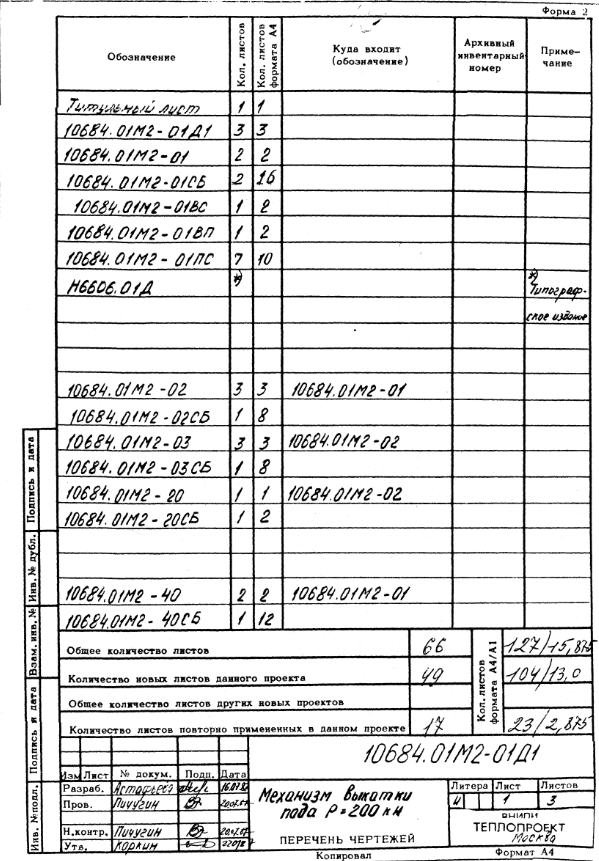 Форма 2
Обозначение Кол. листов Кол. листов формата А4 Куда входит (обозначение) Архивный инвентарный номер Приме-чание
Титульный лист 1 1
10684.01М2-01Д1 3 3
10684.01М2-01 2 2
10684.01М2-01СБ 2 16
10684.01М2-01ВС 1 2
10684.01М2-01ВП 1 2
10684.01М2-01ПС 7 10
Н6606.01Д *) *) Типограф-
ское издание
10684.01М2-02 3 3 10684.01М2-01
10684.01М2-02СБ 1 8
10684.01М2-03 3 3 10684.01М2-02
10684.01М2-03СБ 1 8
10684.01М2-20 1 1 10684.01М2-02
10684.01М2-20СБ 1 2
10684.01М2-40 2 2 10684.01М2-01
10684.01М2-40СБ 1 12
Общее количество листов 66 Кол. листов формата А4/А1 127/15,875
Количество новых листов данного проекта 49 104/13,0
Общее количество листов других новых проектов
Количество листов повторно примененных в данном проекте 17 23/2,875
10684.01М2-01Д1
Изм Лист № докум. Подп. Дата
Разраб. Астафьева
Пров. Пичугин
Н.контр. Пичугин
Утв. Коркин
Механизм выкатки
пода Р=200 кН
ПЕРЕЧЕНЬ ЧЕРТЕЖЕЙ
Литера Лист Листов
И 1 3
ВНИПИ
ТЕПЛОПРОЕКТ
Москва
Копировал Формат А4
Подпись и дата
Инв. № дубл.
Взам. инв. №
Подпись и дата
Инв. № подл.